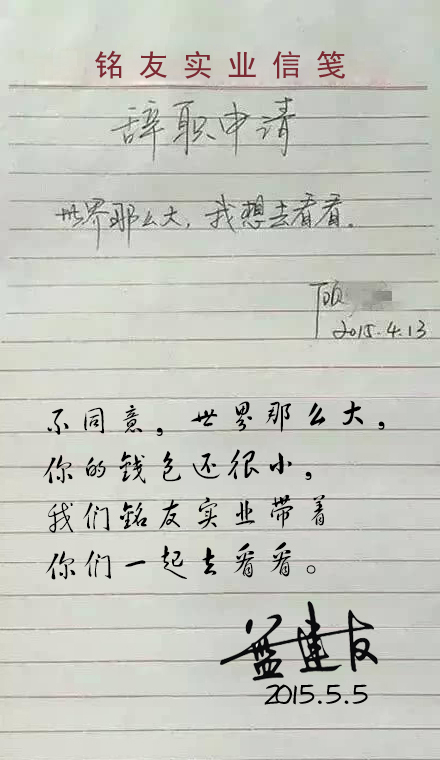 铭友实业信笺
辞职申请
世界那么大，我想去看看.
顾
2015.4.13
不同意，世界那么大，
你的钱包还很小，
我们铭友实业带着
你们一起去看看。
蓝建友
2015.5.5